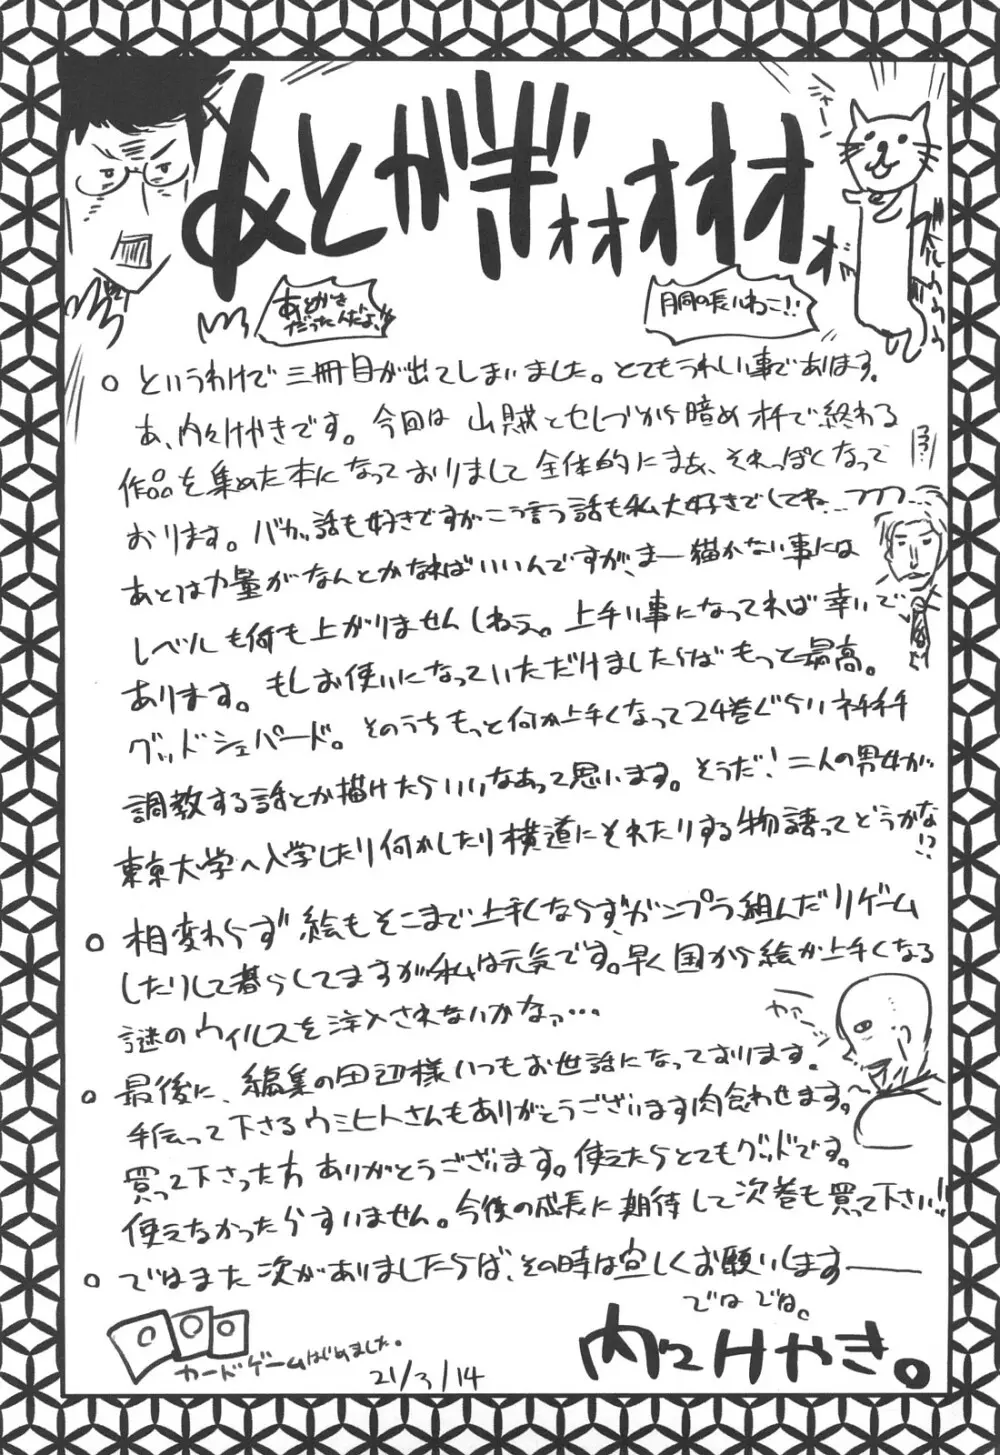 あとがきぉォオオオオ
あとがき
だったんだよ!!
胴の長いねこ!!
○というわけで三冊目が出てしまいました。とてもうれしい事であります。
あ、内々けやきです。今回は山賊とセレブから暗めオチで終わる
作品を集めた本になっておりまして全体的にまぁ、それっぽくなって
おります。バカな話も好きですがこう言う話も私大好きでしてね…
あとは力量がなんとかなればいいんですが、まー描かない事には
レベルも何も上がりませんしねぇ。上手い事になってれば幸いで
あります。もしお使いになっていただけましたらばもっと最高。
グッドシェパード。そのうちもっと何か上手くなって24巻ぐらいネチネチ
調教する話とか描けたらいいなあって思います。そうだ!二人の男女が
東京大学へ入学したり何かしたり横道にそれたりする物語ってどうかな!?
○相変わらず絵もそこまで上手くならず、ガンプラ組んだりゲーム
したりして暮らしてますが私は元気です。早く国から絵が上手くなる
謎のウィルスを注入されないかなァ…
○最後に、編集の田辺様いつもお世話になっております。
手伝って下さるウミヒトさんもありがとうございます肉食わせます。
買って下さった方ありがとうございます。使えたらとてもグッドです。
使えなかったらすいません。今後の成長に期待して次巻も買って下さい!!
○ではまた次がありましたらば、その時は宜しくお願いします――
ではでは。
内々けやき。
カードゲームはじめました。
21/3/14